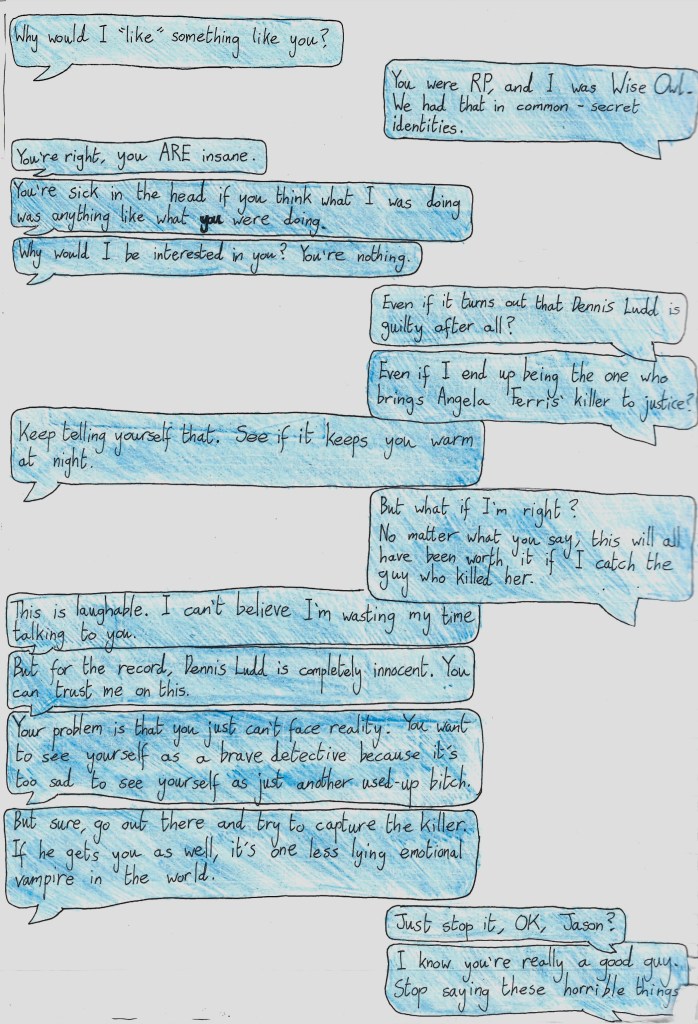 Why would I "like" something like you?
You were RP, and I was Wise Owl.
We had that in common - secret
identities.
You're right, you ARE insane.
You're sick in the head if you think what I was doing
was anything like what you were doing.
Why would I be interested in you? You're nothing.
Even if it turns out that Dennis Ludd is
guilty after all?
Even if I end up being the one who
brings Angela Ferris' killer to justice?
Keep telling yourself that. See if it keeps you warm
at night.
But what if I'm right?
No matter what you say, this will all
have been worth it if I catch the
guy who killed her.
This is laughable. I can't believe I'm wasting my time
talking to you.
But for the record, Dennis Ludd is completely innocent. You
can trust me on this.
Your problem is that you just can't face reality. You want
to see yourself as a brave detective because it's
too sad to see yourself as just another used-up bitch.
But sure, go out there and try to capture the killer.
If he gets you as well, it's one less lying emotional
vampire in the world.
Just stop it, OK, Jason?
I know you're really a good guy.
Stop saying these horrible things